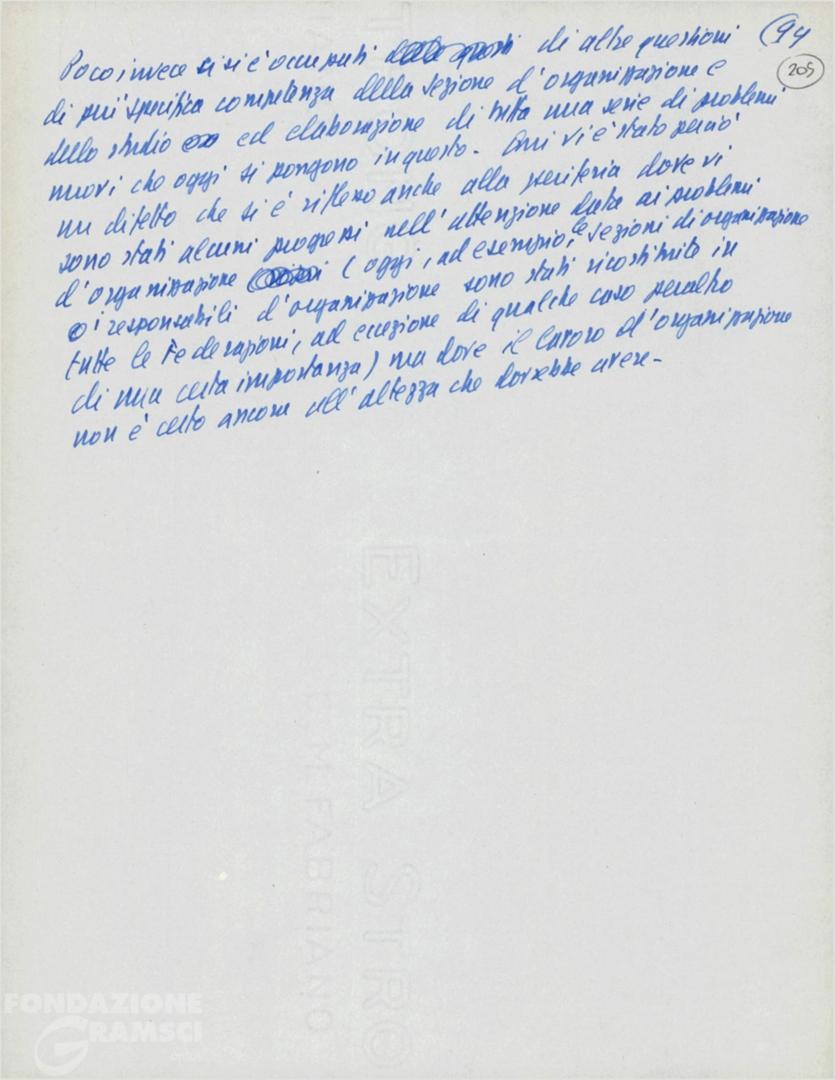 (94
205
Poco invece si si è occupati di altre questioni
di più specifica competenza della sezione d'organizzazione e
dello studio ed elaborazione di tutta una serie di problemi
nuovi che oggi si pongono in questo - Qui vi è stato perciò
un difetto che si è riflesso anche alla periferia dove vi
sono stati alcuni progressi nell'attenzione data ai problemi
d'organizzazione ( oggi, ad esempio, le sezioni di organizzazione
o i responsabili d'organizzazione sono stati ricostituite in
tutte le Federazioni, ad eccezione di qualche caso peraltro
di una certa importanza) ma dove il lavoro d'organizzazione
non è certo ancora all'altezza che dovrebbe avere -
EXTRA STRO
C.M.FABRIANO
FONDAZIONE
GRAMSCI